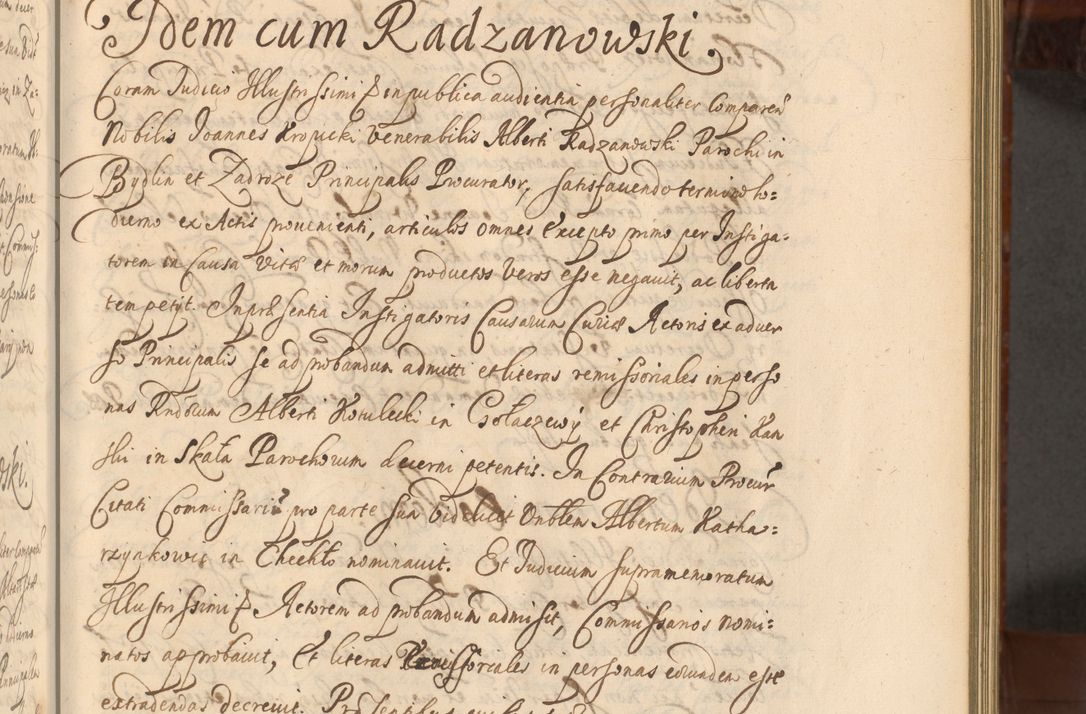 Idem cum Radzanowski.
Coram Judicio Illustrissimi et in publica audientia personaliter Comparen
Nobilis Joannes Kropicki Venerabilis Alberti Radzanowski Parochi in
Bydlin et Zadroże Principalis Procurator, satisfaciendo termino ho-
dierno ex Actis provenienti, articulos omnes Excepto primo per Instiga-
torem in Causa Vitæ et morum productos Veros esse negavit, ac liberta
tem petijt. In præsentia Instigatoris Causarum Curiæ Actoris ex adver
so Principalis se ad probandum admitti et literas remissoriales in perso
nas Rndorum Alberti Kotulecki in Gołaczewÿ et Christophori Kan
ski in Skała Parochorum decerni petentis. In Contrarium Procur
Citati Commissariu pro parte sua Videlicet Vnblem Albertum Katha-
rzynkowic in Chechło nominavit. Et Judicium supramemoratum
Illustrissimi Actorem ad probandum admisit, Commissarios nomi-
natos approbavit, Et literas Remissoriales in personas eorundem esse
extradendas decrevit. Præsentibus